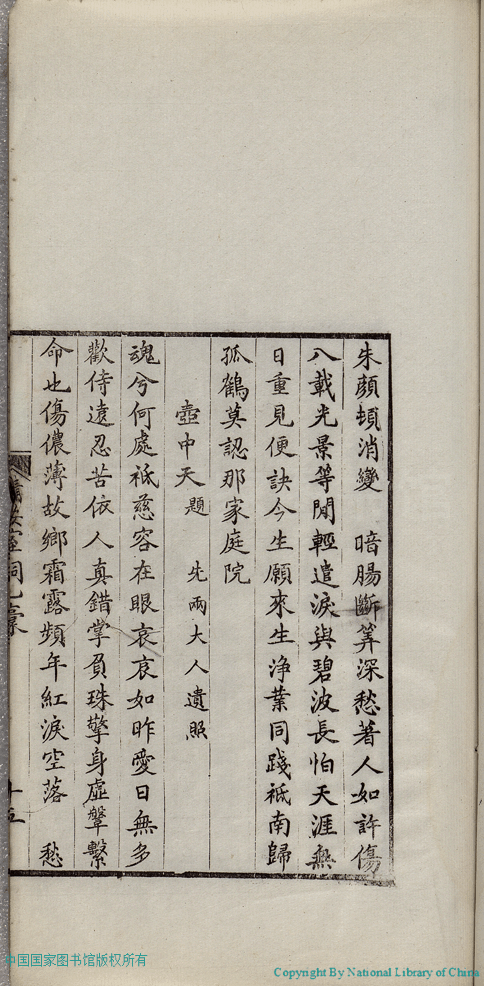 朱顏頓消變　暗腸斷筭深愁著人如許傷
八載光景等閒輕遣淚與碧波長怕天涯無
日重見便訣今生願來生淨業同踐祗南歸
孤鶴莫認那家庭院
壺中天題　先兩大人遺照
魂兮何處祗慈容在眼哀哀如昨愛日無多
歡侍遠忍苦依人真錯掌負珠擎身虛鞶繫
命也傷儂薄故鄉霜露頻年紅淚空落　愁
室詞
十五
中国国家图书馆版权所有
Copyright By National Library of China